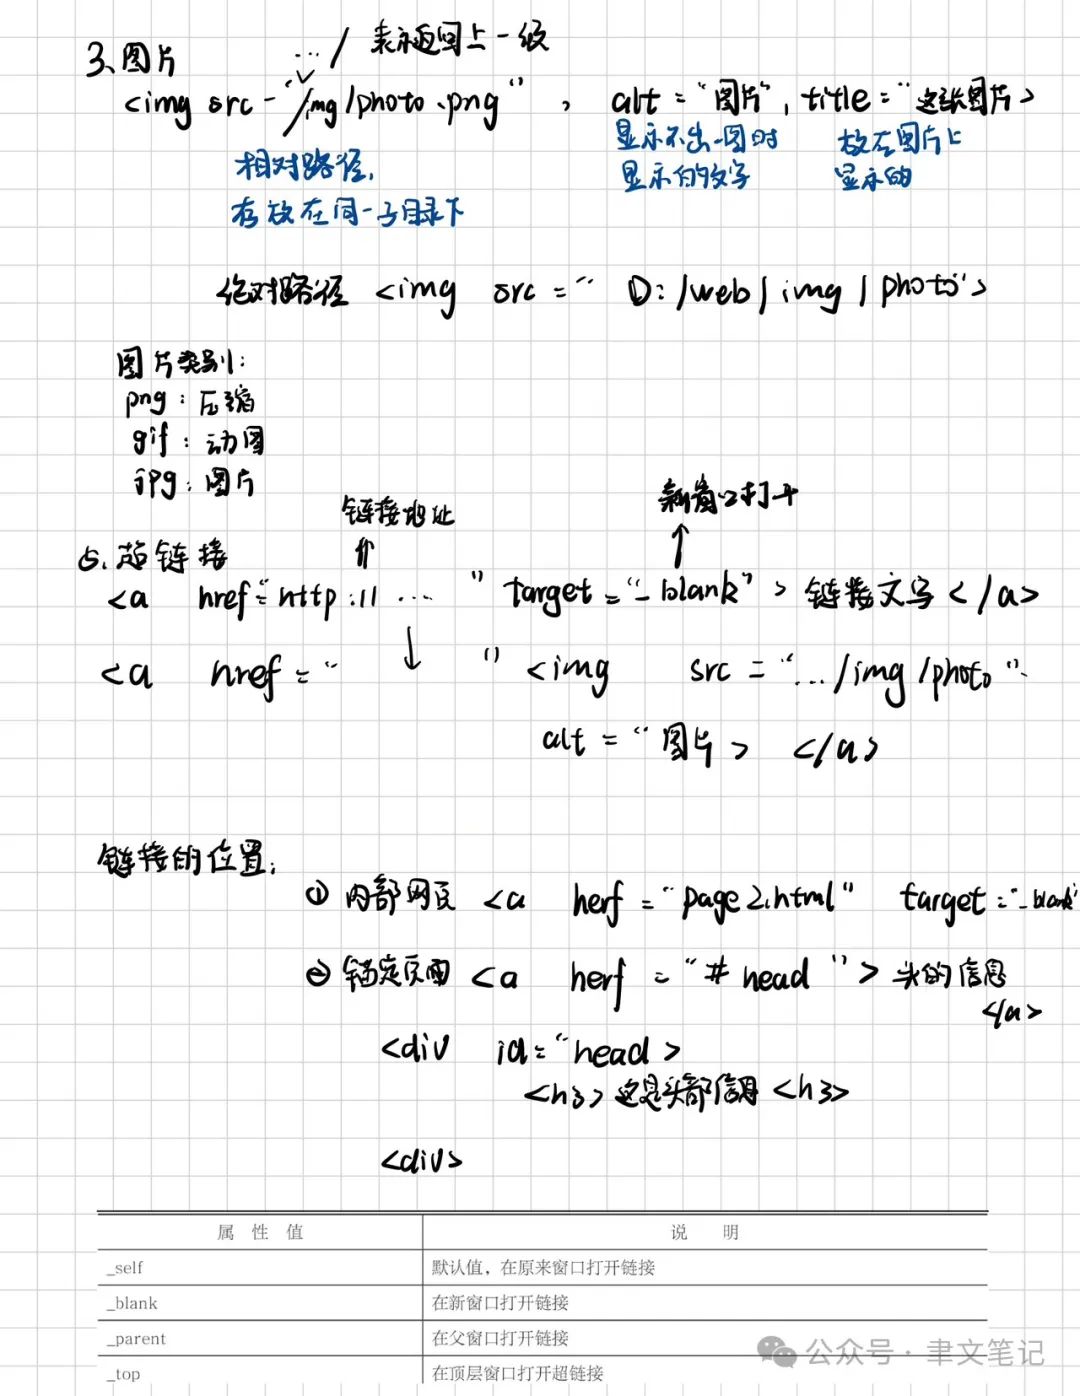 .../ 表示返回上一级
3、图片
<img src-"/img/photo.png", alt="图片", title="这张图片>
相对路径, 显示不出图时 放在图片上
存放在同一子目录下 显示的文字 显示的
绝对路径 <img src=" D:/web/img/photo">
图片类别:
png:压缩
gif:动图
jpg:图片
链接地址 新窗口打开
5.超链接
<a href="http://... " target="_blank"> 链接文字</a>
<a href=" " <img src=".../img/photo"
alt="图片> </a>
链接的位置:
① 内部网页 <a herf="page2.html" target="_blank"
② 锚定页面 <a herf="#head"> 头的信息
</a>
<div id="head>
<h3>这是头部信息<h3>
<div>
属 性 值 说 明
_self 默认值,在原来窗口打开链接
_blank 在新窗口打开链接
_parent 在父窗口打开链接
_top 在顶层窗口打开超链接
公众号·聿文笔记